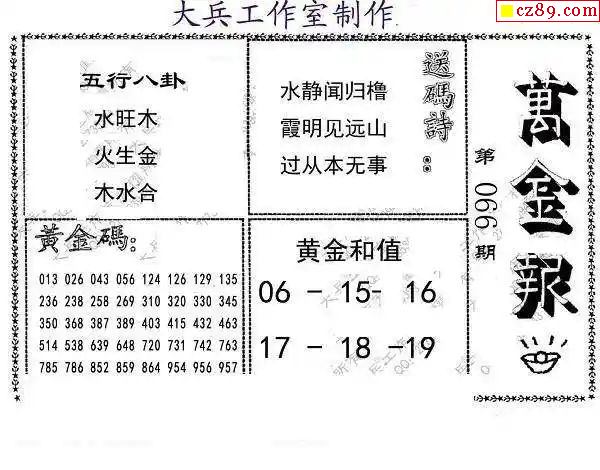 大兵工作室制作
cz89.com
五行八卦
水旺木
火生金
木水合
送碼詩：
水静闻归橹
霞明见远山
过从本无事
萬金报
第066期
黃金碼：
013 026 043 056 124 126 129 135
236 238 258 269 310 320 330 345
350 368 387 389 403 415 432 463
514 538 639 648 670 731 742 763
785 786 852 859 864 954 956 957
黄金和值
06 - 15- 16
17 - 18 -19